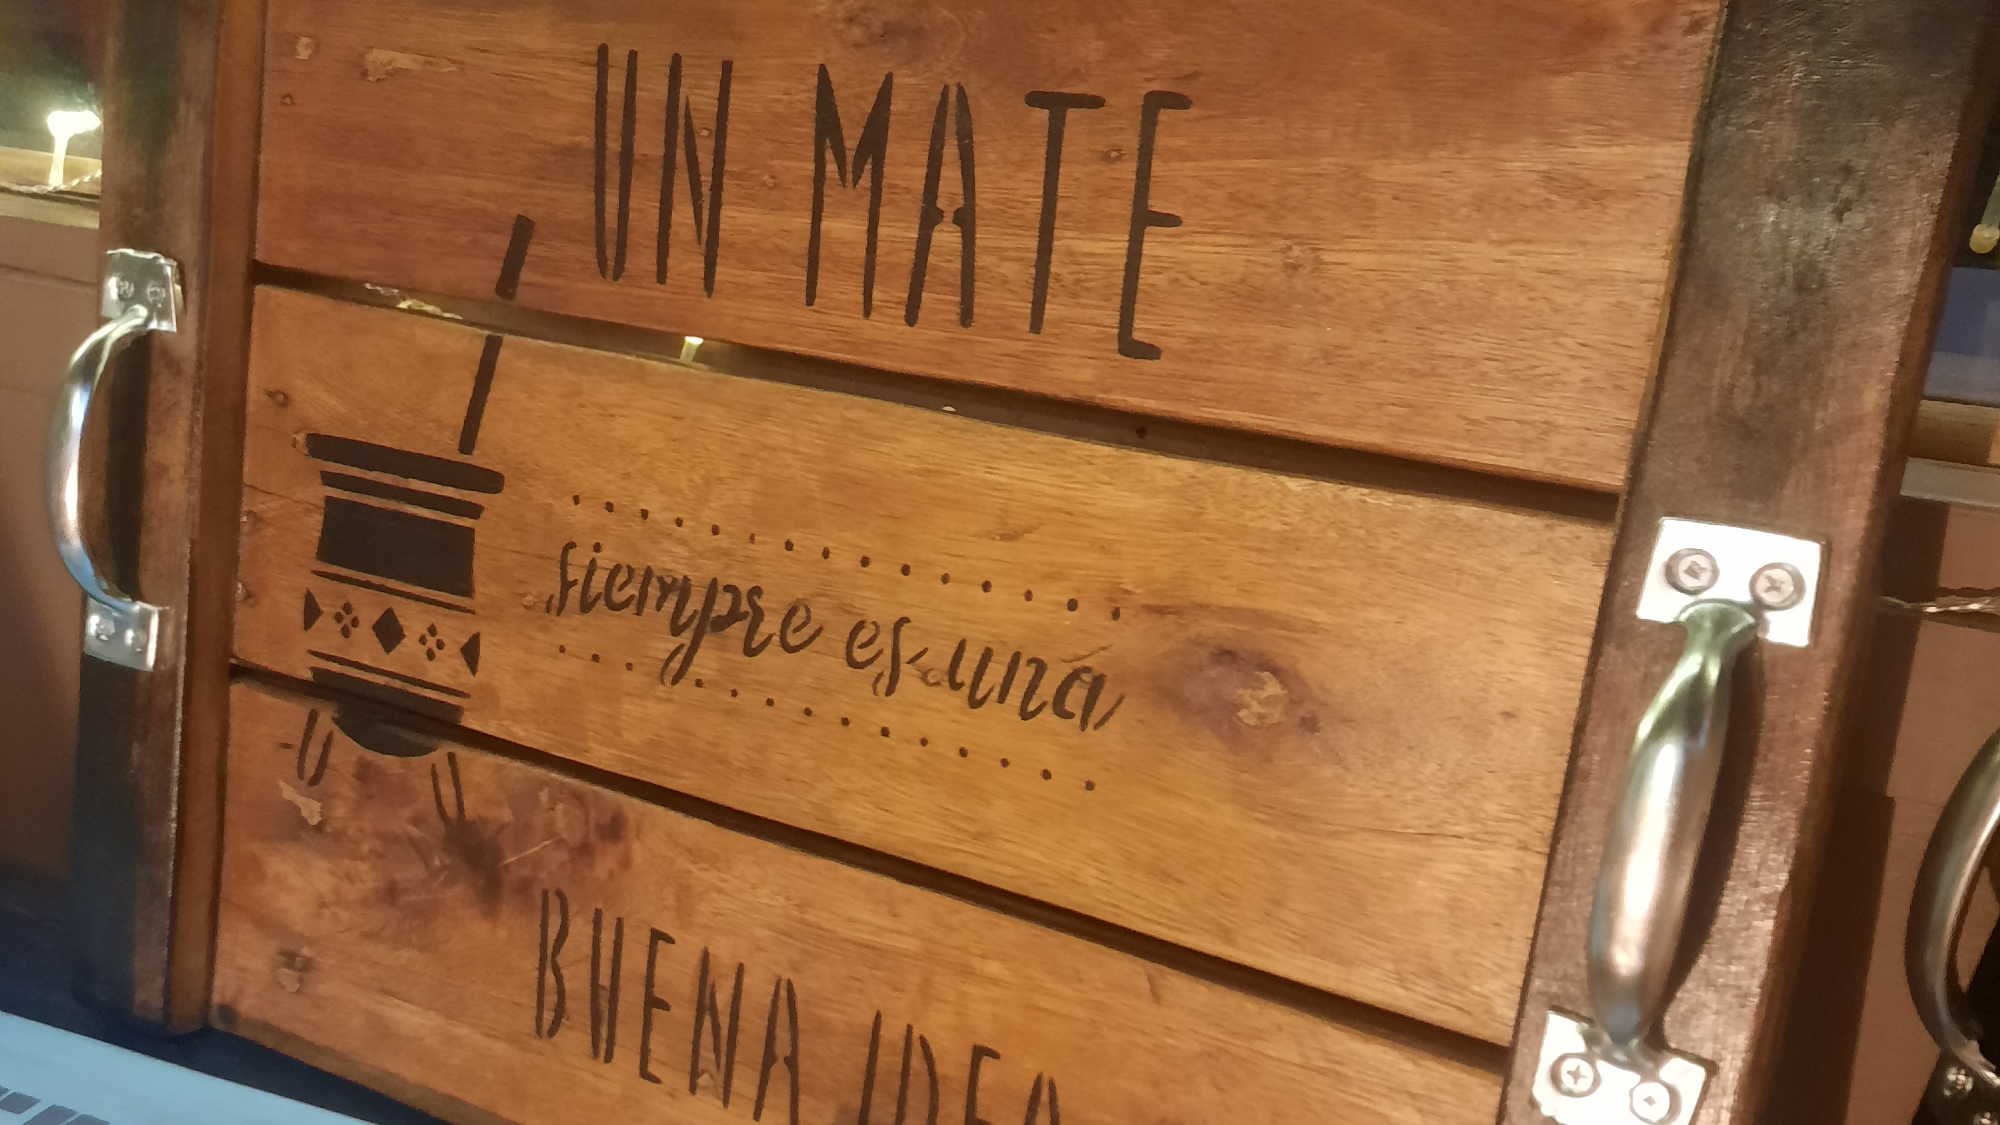 UN MATE
siempre es una
BUENA IDEA